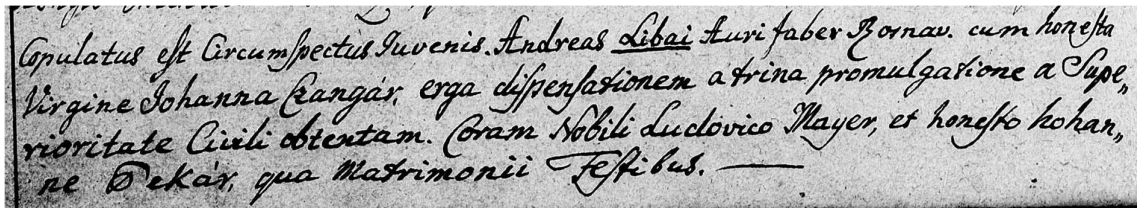 Copulatus est Circumspectus Iuvenis. Andreas Libai Aurifaber Rosnav. cum honesta
Virgine Iohanna Czangár, erga dispensationem a trina promulgatione a Supe„
rioritate Civili obtentam. Coram Nobili Ludovico Mayer, et honesto Iohan„
ne Pekár, qua Matrimonii Testibus. —